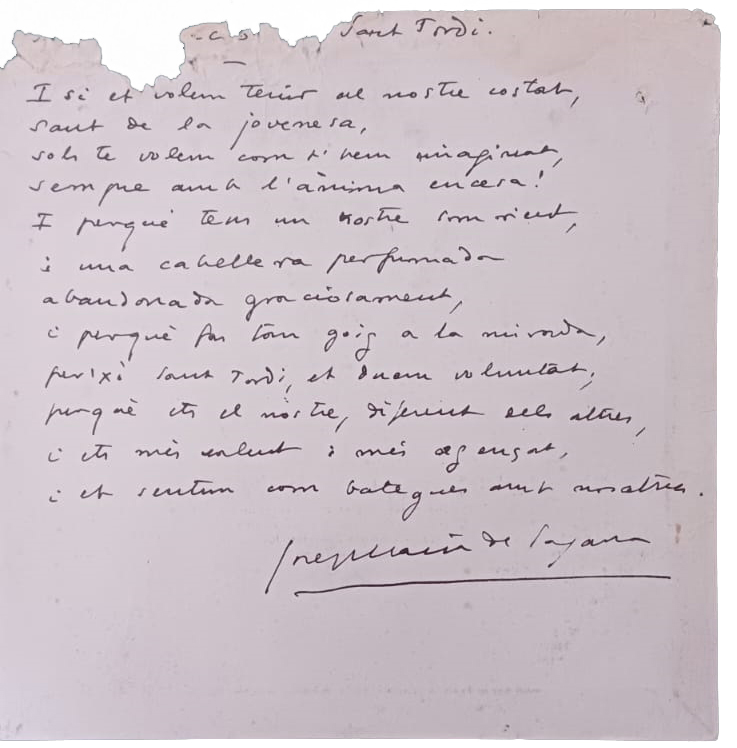 Sant Jordi.
I si et volem tenir al nostre costat,
sant de la jovenesa,
sols te volem com t'hem imaginat,
sempre amb l'ànima encesa!
I perquè tens un rostre somrient,
i una cabellera perfumada
abandonada graciosament,
i perquè fas tan goig a la mirada,
per'xò Sant Jordi, et duem voluntat,
perquè ets el nostre, diferent dels altres,
i ets més valent i més agençat,
i et sentim com bategues amb nosaltres.
Josep Maria de Sagarra